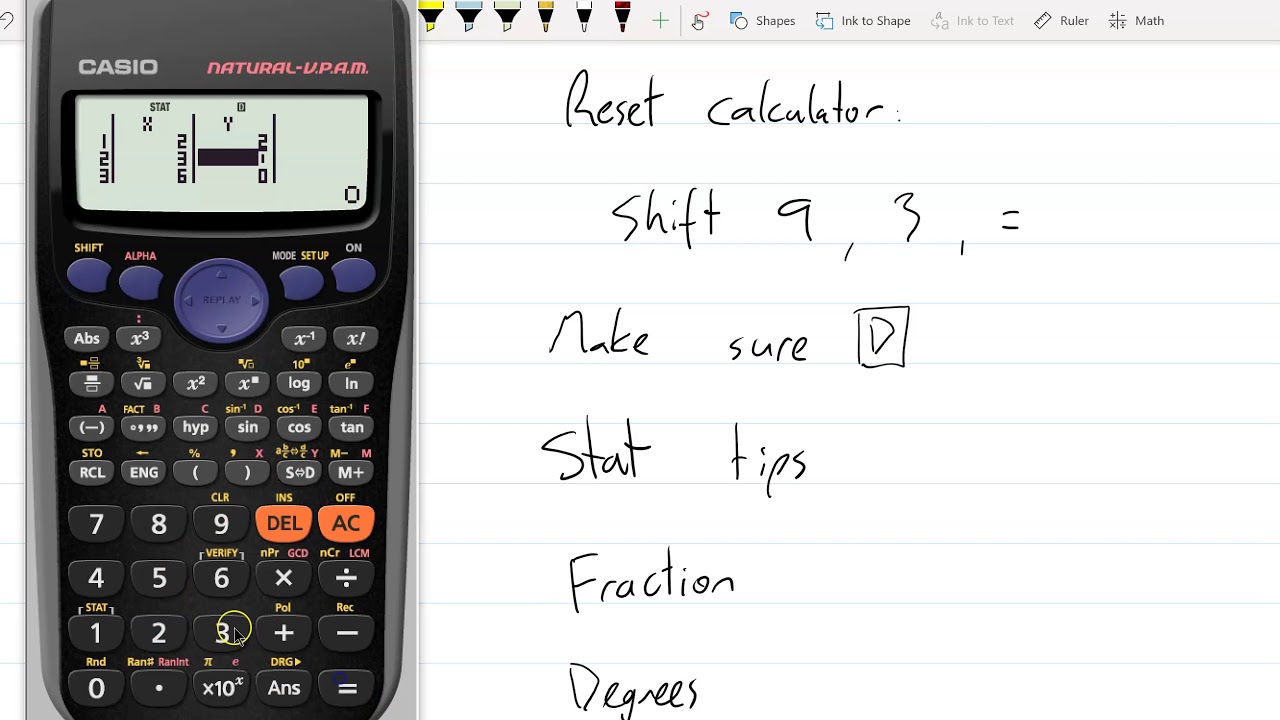 Shapes Ink to Shape Ink to Text Ruler Math
CASIO NATURAL-V.P.A.M.
STAT D
X Y
1 2 2
2 3 1
3 6 0
0
SHIFT ALPHA MODE SETUP ON
REPLAY
:
Abs x³ x⁻¹ x!
³√ 10■ e■
√■ x² x■ log ln
A FACT B C sin⁻¹ D cos⁻¹ E tan⁻¹ F
(—) °,,, hyp sin cos tan
STO ← % , X a b/c⇔d/c Y M− M
RCL ENG ( ) S⇔D M+
CLR INS OFF
7 8 9 DEL AC
VERIFY nPr GCD nCr LCM
4 5 6 × ÷
STAT Pol Rec
1 2 3 + −
Rnd Ran# RanInt π e DRG▶
0 · ×10ˣ Ans =
Reset calculator:
Shift 9, 3, =
Make sure D
Stat tips
Fraction
Degrees